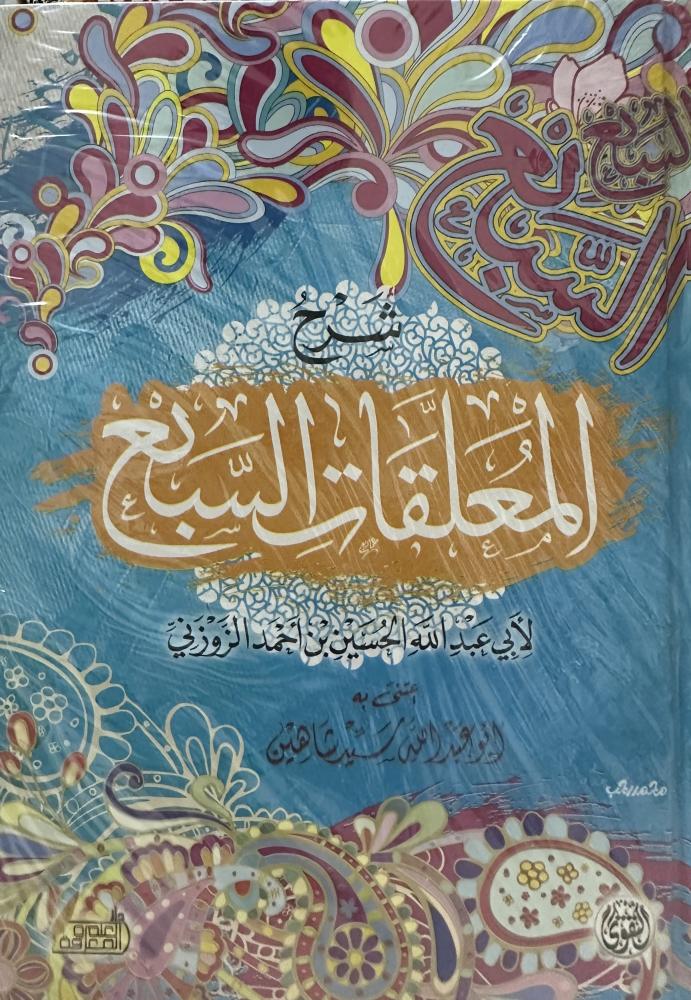 السبع
السبع
شَرْحُ
المُعَلَّقَاتِ السَّبْعِ
لِأَبِي عَبْدِ اللَّهِ الحُسَيْنِ بْنِ أَحْمَدَ الزَّوْزَنِيِّ
اعتنى به
أبو عبد الله سيد شاهين
دار العلوم والمعرفة
التقوى